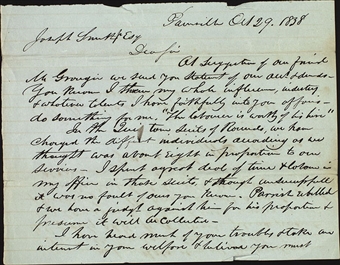 Painsvill Oct 29. 1838
Joseph Smith Jr Esq
Dear Sir
At Suggestion of our friend
Mr Granger we send you Statmt of our acc & demds
You know I threw my whole influence, industry
& whatever talents I have faithfully into your affairs—
do something for me, "The labourer is worthy of his hire"
In the Suits of Rounds, we have
charged the diffnt individuals according as we
thought was about right in proportion to our
services— I spent a great deal of time & labour in
my office in those suits, & though unsuccessful
it was no fault of ours you know. Parrish rebelled
& we have a judgt against him for his proportion &
presume it will be collected—
I have heard much of your troubles & take an
interest in your welfare & believe you must